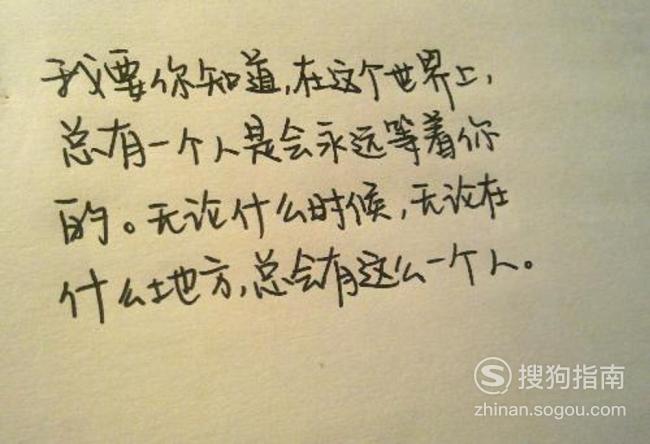 我要你知道,在这个世界上,
总有一个人是会永远等着你
的。无论什么时候,无论在
什么地方,总会有这么一个人。
搜狗指南
zhinan.sogou.com